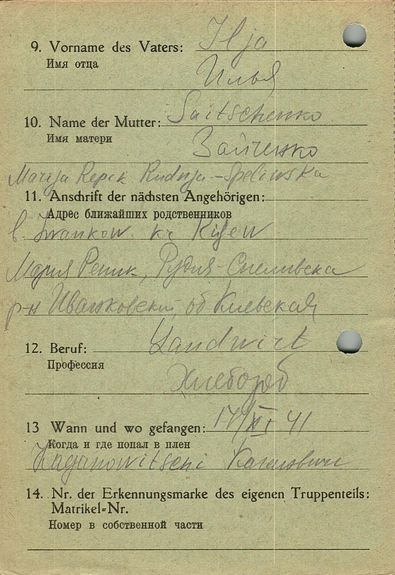 9. Vorname des Vaters: Ilja
Имя отца Илья
10. Name der Mutter: Saitschenko
Имя матери Зайченко
Marija Repek Rudnja-
11. Anschrift der nächsten Angehörigen:
Адрес ближайших родственников
b. Iwankow. Kijew
Мария Репик, Рудня-
р-н Иванковский об Киевская
12. Beruf: Landwirt
Профессия Хлебороб
13 Wann und wo gefangen: XI 41
Когда и где попал в плен
Kaganowitschi Каганович
14. Nr. der Erkennungsmarke des eigenen Truppenteils:
Matrikel-Nr.
Номер в собственной части